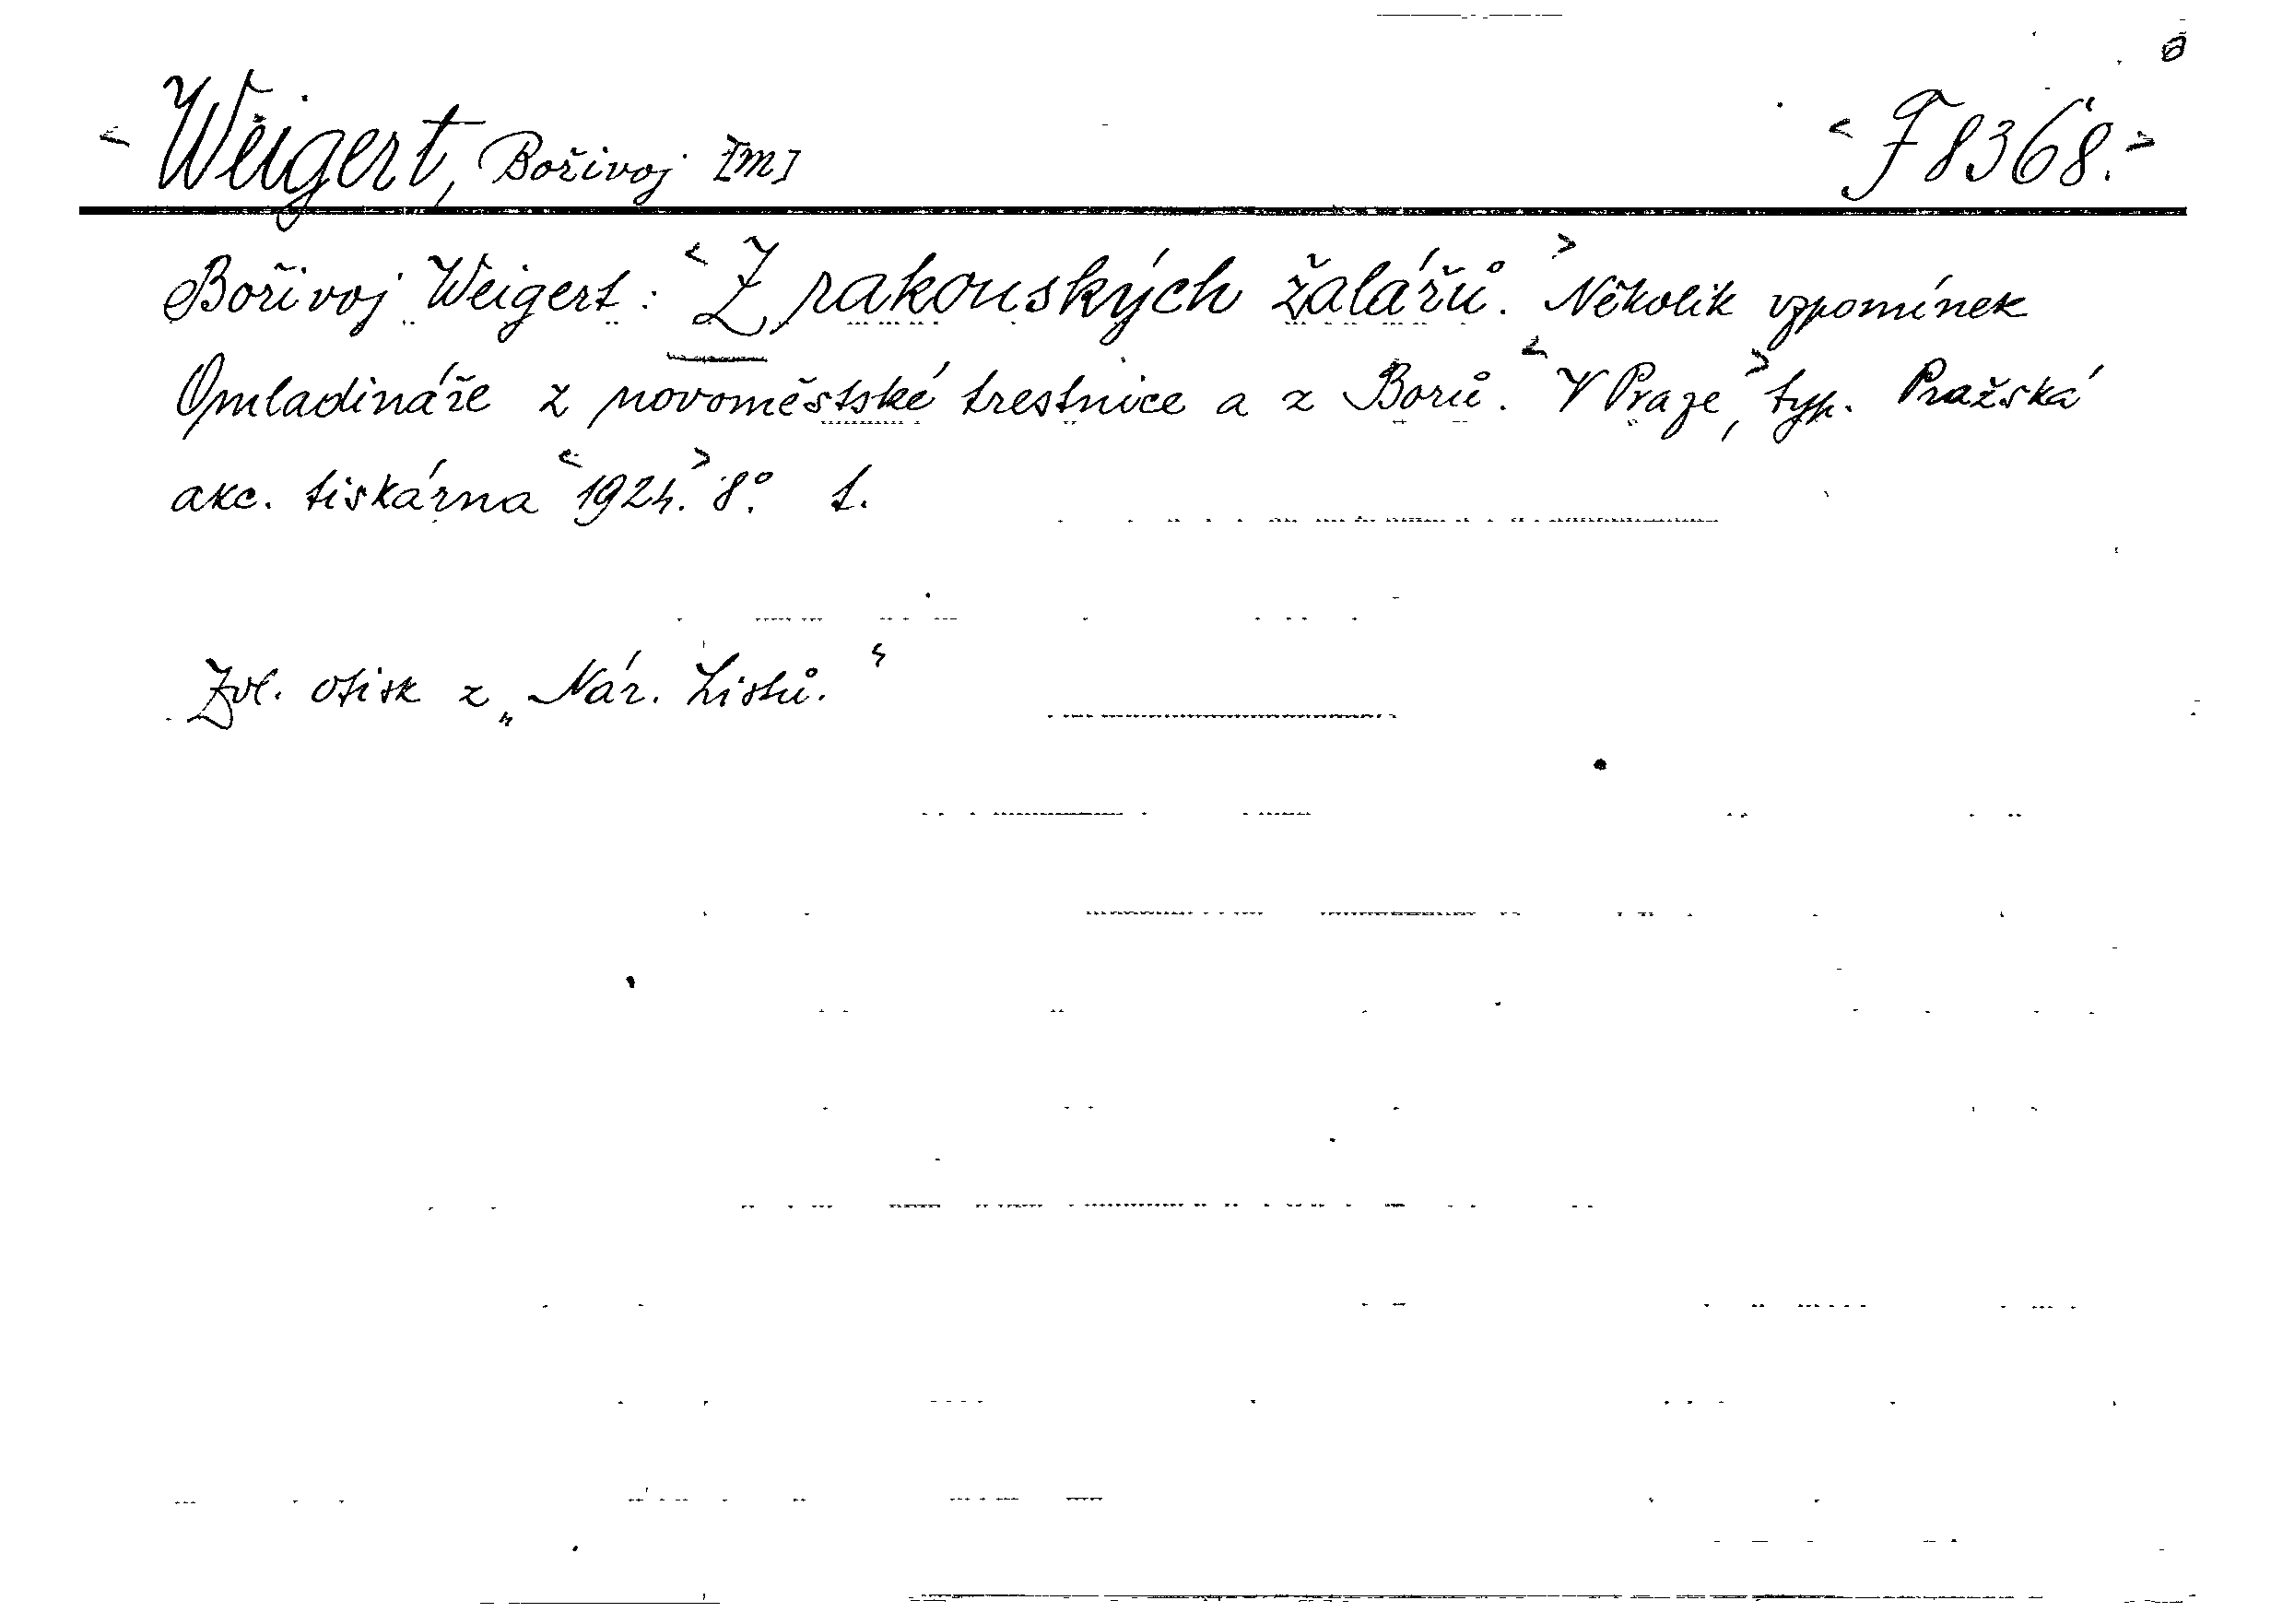 < Weigert, Bořivoj [m] < F 8368. >
Bořivoj Weigert: < Z rakouských žalářů. > Několik vzpomínek
Omladináře z novoměstské trestnice a z Borů. < V Praze, > typ. Pražská
akc. tiskárna < 1924. > 8°. 1.
Zvl. otisk z „Nár. Listů.“